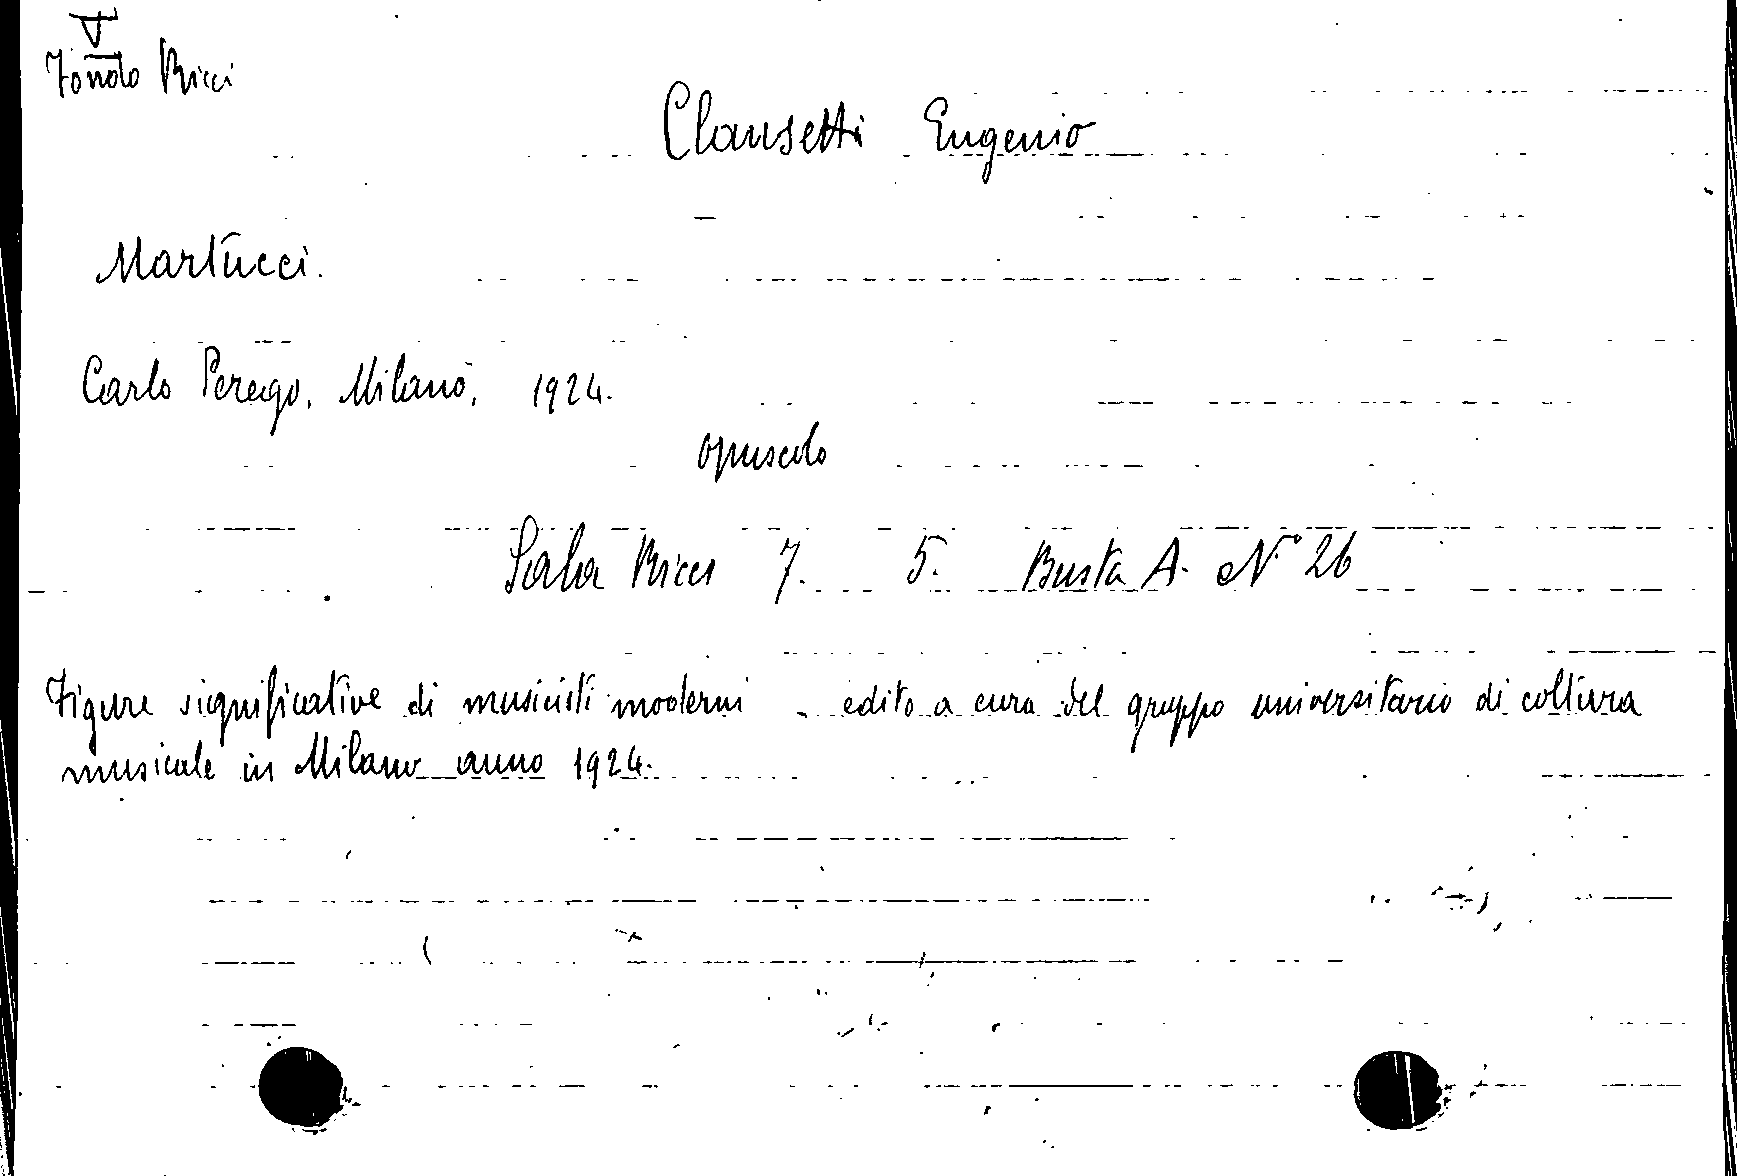 Fondo Ricci
Clausetti Eugenio
Martucci.
Carlo Perego, Milano, 1924.
opuscolo
Sala Ricci 7. 5. Busta A. N° 26
Figure significative di musicisti moderni - edito a cura del gruppo universitario di coltura
musicale in Milano anno 1924.